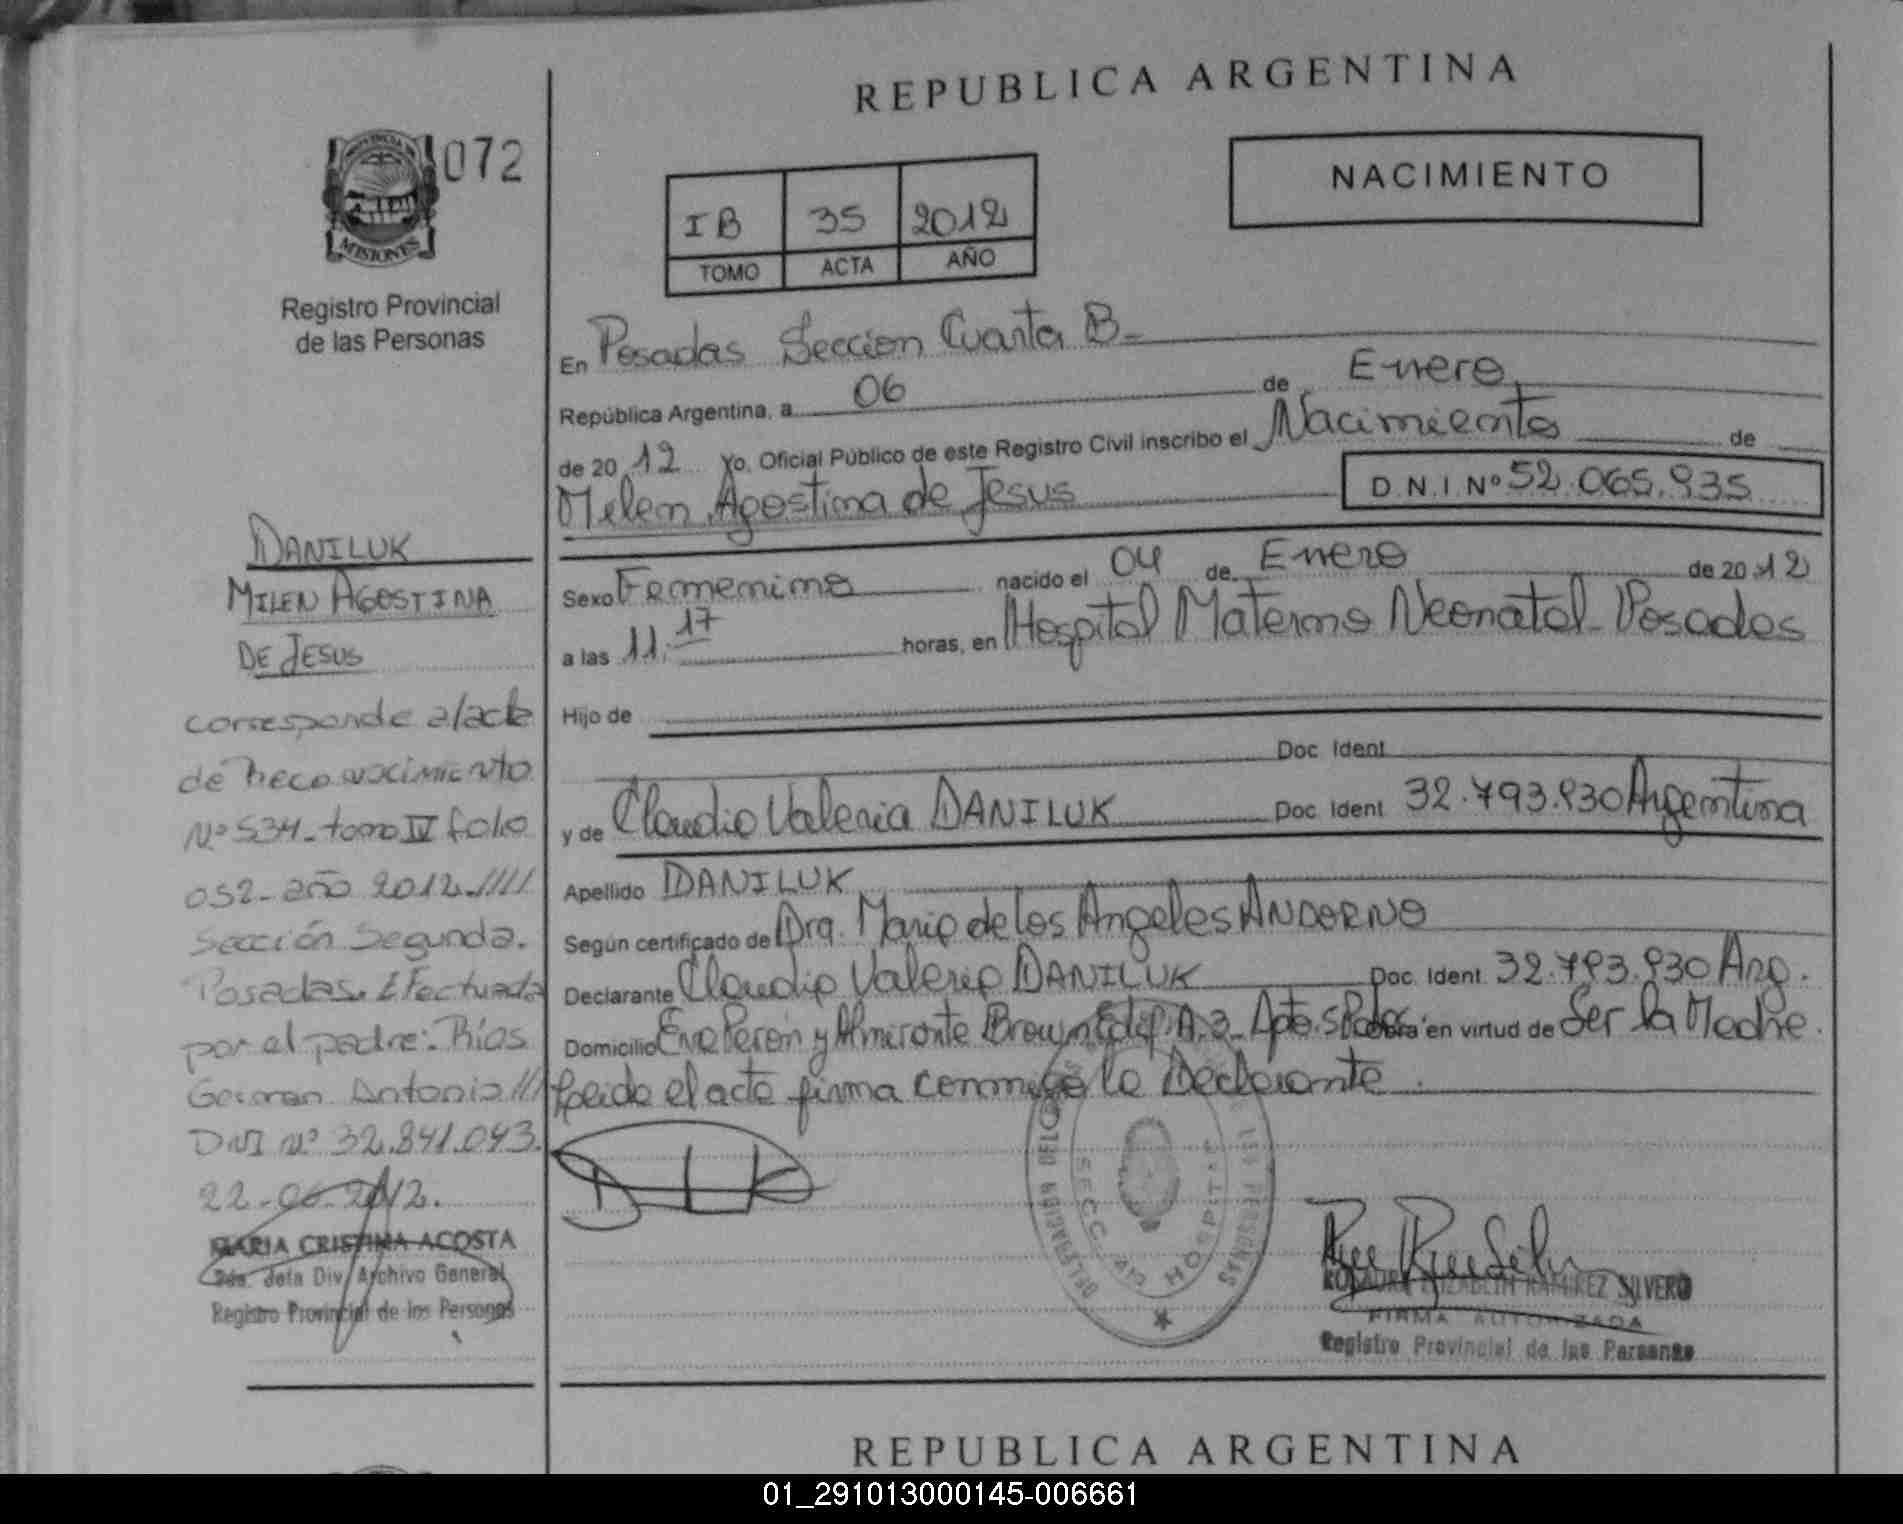 REPUBLICA ARGENTINA
072
PROVINCIA DE
MISIONES
Registro Provincial
de las Personas
NACIMIENTO
IB 35 2012
TOMO ACTA AÑO
En Posadas Seccion Cuarta B-
República Argentina, a 06 de Enero
de 2012 Yo, Oficial Público de este Registro Civil inscribo el Nacimiento de
Milen Agostina de Jesus D.N.I. Nº 52.065.935
Sexo Femenino nacido el 04 de Enero de 2012
a las 11:17 horas, en Hospital Materno Neonatal-Posadas
Hijo de
Doc. Ident.
y de Claudia Valeria DANILUK Doc. Ident. 32.793.930 Argentina
Apellido DANILUK
Según certificado de Dra. Maria de los Angeles ANDORNO
Declarante Claudia Valeria DANILUK Doc. Ident. 32.793.930 Arg.
Domicilio Eva Perón y Almirante Brown Edif. A. 3- Apto. 5 Pdas. Obra en virtud de Ser la Madre.
Leída el acta firma conmigo la Declarante.
DANILUK
MILEN AGOSTINA
DE JESUS
corresponde al acta
de Reconocimiento
Nº 534-tomo IV folio
052-año 2012.////
Sección Segunda.
Posadas. Efectuada
por el padre: Ríos
German Antonio///
DNI Nº 32.841.043.
22-06-2012.
MARIA CRISTINA ACOSTA
Jefa Div. Archivo General
Registro Provincial de las Personas
DELEGACION DEL PERSONAS
SECC. HOSPITAL
ROSAURA ELIZABETH RAMIREZ SILVERO
FIRMA AUTORIZADA
Registro Provincial de las Personas
REPUBLICA ARGENTINA
01_291013000145-006661